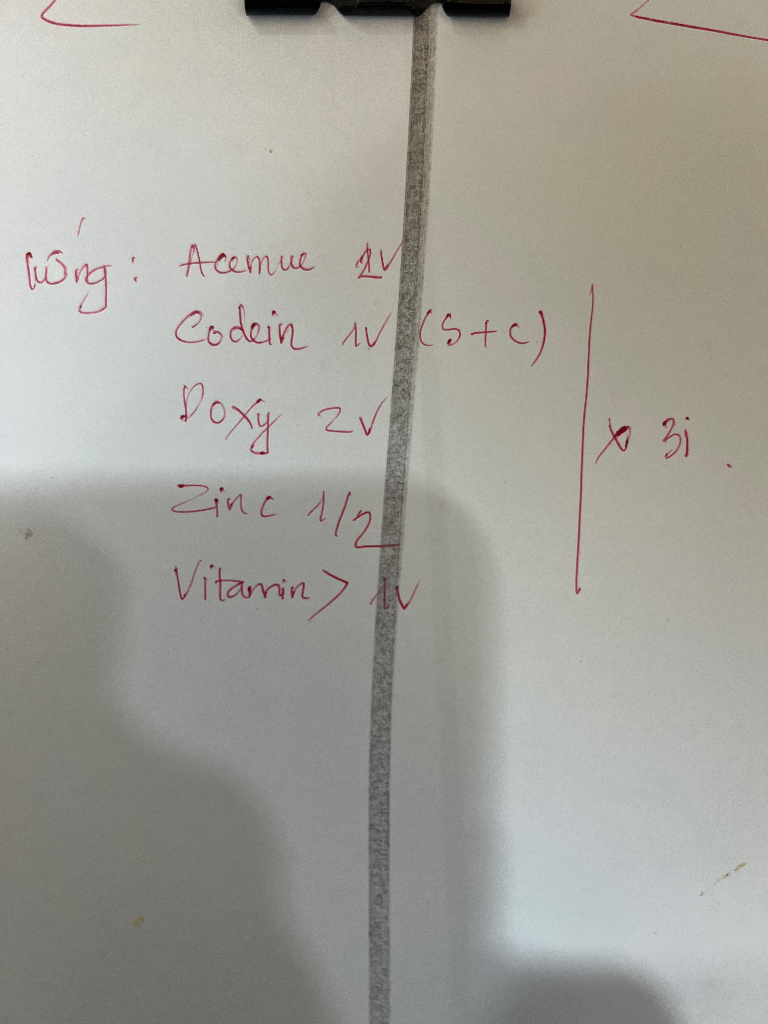 Uống: Acemuc 2V
Codein 1V (S+C)
Doxy 2V
Zinc 1/2
Vitamin > 1V
x 3i.